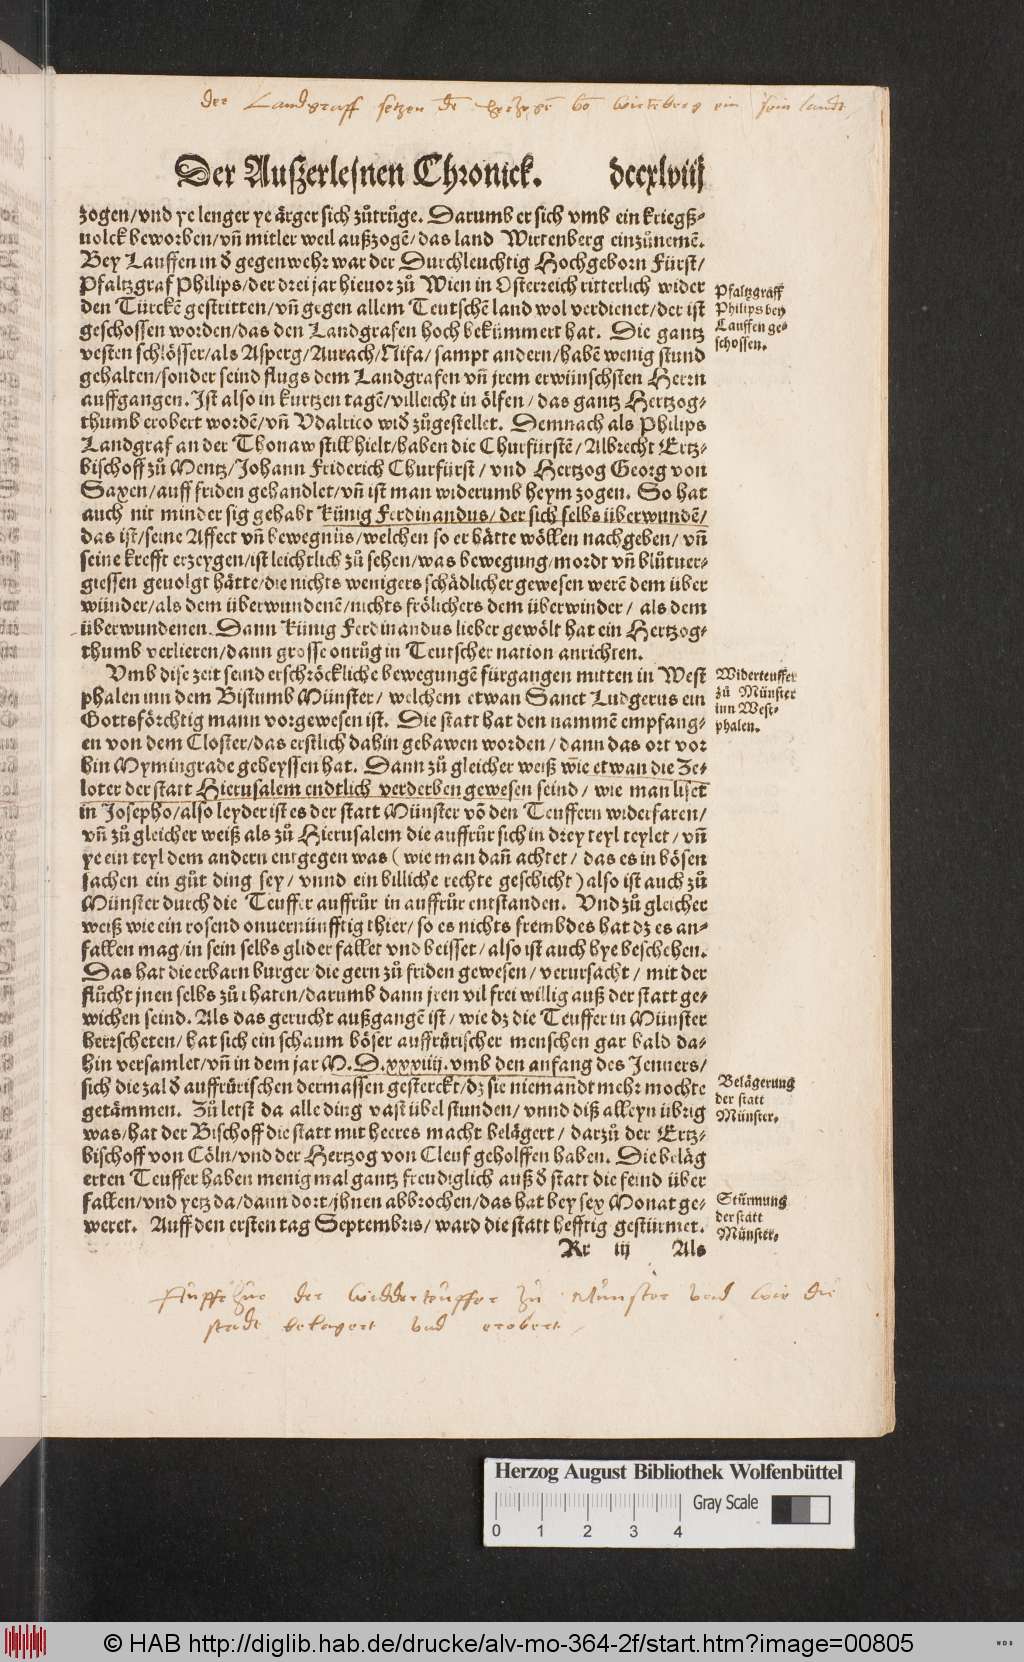 der Landgraff setzen dē hertzogē vō wirtēberg ein sein landt
Der Außerlesnen Chronick. dccxlviij
zogen/vnd ye lenger ye ärger sich zůtrůge. Darumb er sich vmb ein kriegß-
uolck beworben/vñ mitler weil außzogē/das land Wirtenberg einzůnemē.
Bey Lauffen in d̛ gegenwehr war der Durchleuchtig Hochgeborn Fürst/
Pfaltzgraf Philips/der drei jar hieuor zů Wien in Osterreich ritterlich wider
den Türckē gestritten/vñ gegen allem Teutschē land wol verdienet/der ist
geschossen worden/das den Landgrafen hoch bekümmert hat. Die gantz
vesten schlösser/als Asperg/Aurach/Nifa/sampt andern/habē wenig stund
gehalten/sonder seind flugs dem Landgrafen vñ jrem erwünschsten Herrn
auffgangen. Ist also in kurtzen tagē/villeicht in ölfen/das gantz Hertzog-
thumb erobert wordē/vñ Vdalrico wid̛ zůgestellet. Demnach als Philips
Landgraf an der Thonaw still hielt/haben die Churfürstē/Albrecht Ertz-
bischoff zů Mentz/Johann Friderich Churfürst/vnd Hertzog Georg von
Saxen/auff friden gehandlet/vñ ist man widerumb heym zogen. So hat
auch nit minder sig gehabt Künig Ferdinandus/der sich selbs überwundē/
das ist/seine Affect vñ bewegnüs/welchen so er hätte wöllen nachgeben/vñ
seine krefft erzeygen/ist leichtlich zů sehen/was bewegung/mordt vñ blůtuer-
giessen geuolgt hätte/die nichts wenigers schädlicher gewesen werē dem über
wünder/als dem überwundenē/nichts frölichers dem überwinder/als dem
überwundenen. Dann Künig Ferdinandus lieber gewölt hat ein Hertzog-
thumb verlieren/dann grosse onrůg in Teutscher nation anrichten.
Vmb dise zeit seind erschröckliche bewegungē fürgangen mitten in West
phalen inn dem Bistumb Münster/welchem etwan Sanct Ludgerus ein
Gottsförchtig mann vorgewesen ist. Die statt hat den nammē empfang-
en von dem Closter/das erstlich dahin gebawen worden/dann das ort vor
hin Mymingrade geheyssen hat. Dann zů gleicher weiß wie etwan die Ze-
loter der statt Hierusalem endtlich verderben gewesen seind/wie man liset
in Josepho/also leyder ist es der statt Münster vō den Teuffern widerfaren/
vñ zů gleicher weiß als zů Hierusalem die auffrůr sich in drey teyl teylet/vñ
ye ein teyl dem andern entgegen was (wie man dañ achtet/das es in bösen
sachen ein gůt ding sey/vnnd ein billiche rechte geschicht) also ist auch zů
Münster durch die Teuffer auffrůr in auffrůr entstanden. Vnd zů gleicher
weiß wie ein rosend onuernünfftig thier/so es nichts frembdes hat dz es an-
fallen mag/in sein selbs glider fallet vnd beisset/also ist auch hye beschehen.
Das hat die erbarn burger/die gern zů friden gewesen/verursacht/mit der
flucht jnen selbs zů rhaten/darumb dann jren vil frei willig auß der statt ge-
wichen seind. Als das gerucht außgangē ist/wie dz die Teuffer in Münster
herrscheten/hat sich ein schaum böser auffrürischer menschen gar bald da-
hin versamlet/vñ in dem jar M.D.xxxiiij.vmb den anfang des Jenners/
sich die zal d̛ auffrürischen dermassen gesterckt/dz sie niemandt mehr mochte
getämmen. Zů letst da alle ding vast übel stunden/vnnd diß alleyn übrig
was/hat der Bischoff die statt mit heeres macht belägert/darzů der Ertz-
bischoff von Cöln/vnd der Hertzog von Cleuf geholffen haben. Die beläg
erten Teuffer haben menig mal gantz freudiglich auß d̛ statt die feind über
fallen/vnd yetz da/dann dort/jhnen abbrochen/das hat bey sex Monat ge-
weret. Auff den ersten tag Septembris/ward die statt hefftig gestürmet.
Rr iij Als
Pfaltzgraff
Philips bey
Lauffen ge-
schossen.
Widerteuffer
zů Münster
inn West-
phalen.
Belägerung
der statt
Münster.
Stürmung
der statt
Münster.
der widderteuffer zu Munster vnd wie die
stadt belagert vnd erobert
Herzog August Bibliothek Wolfenbüttel
Gray Scale
0 1 2 3 4
© HAB http://diglib.hab.de/drucke/alv-mo-364-2f/start.htm?image=00805